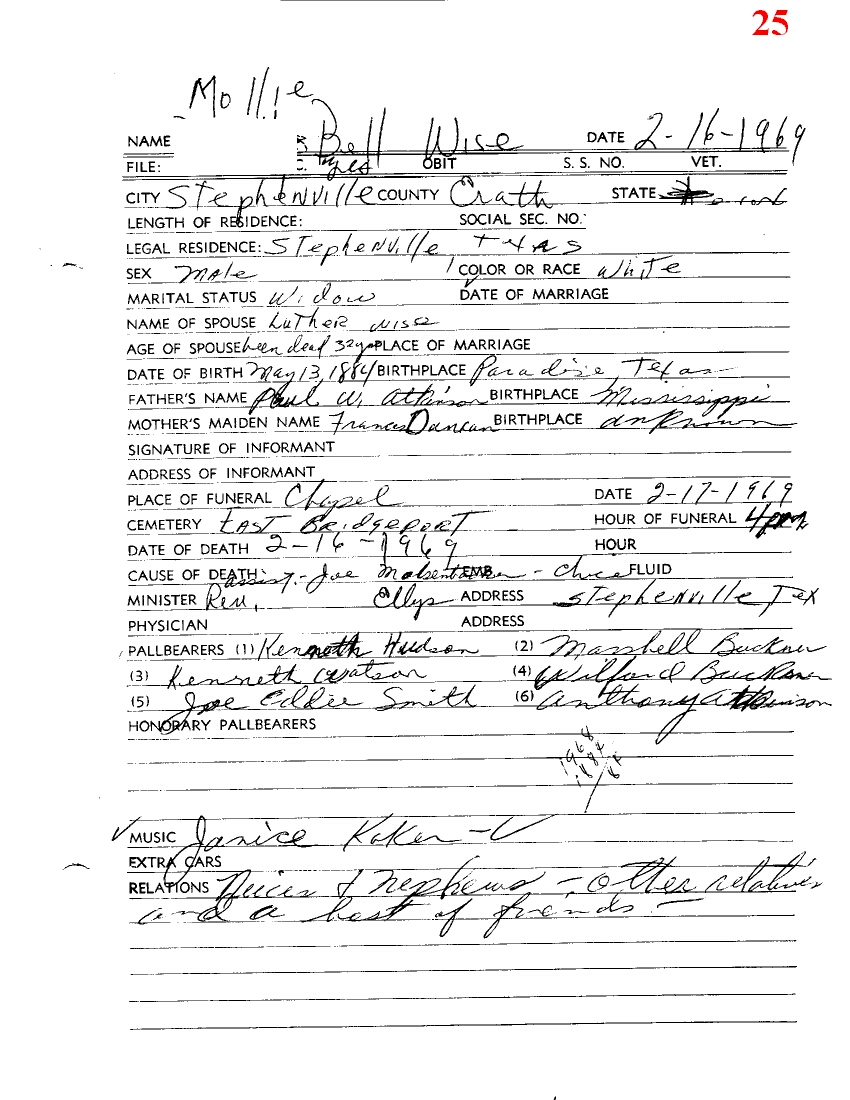 25
Mollie
NAME Bell Wise DATE 2-16-1969
FILE: yes OBIT S. S. NO. VET.
CITY Stephenville COUNTY Erath STATE
LENGTH OF RESIDENCE: SOCIAL SEC. NO.
LEGAL RESIDENCE: Stephenville, Texas
SEX Male COLOR OR RACE White
MARITAL STATUS Widow DATE OF MARRIAGE
NAME OF SPOUSE Luther Wise
AGE OF SPOUSE been dead 32 yr PLACE OF MARRIAGE
DATE OF BIRTH May 13, 1884 BIRTHPLACE Paradise, Texas
FATHER'S NAME Paul W. Atkinson BIRTHPLACE Mississippi
MOTHER'S MAIDEN NAME Frances Duncan BIRTHPLACE unknown
SIGNATURE OF INFORMANT
ADDRESS OF INFORMANT
PLACE OF FUNERAL Chapel DATE 2-17-1969
CEMETERY East Bridgeport HOUR OF FUNERAL 4 pm
DATE OF DEATH 2-16-1969 HOUR
CAUSE OF DEATH: assist.- Joe EMB. FLUID
MINISTER Rev. Ellys ADDRESS Stephenville Tex
PHYSICIAN ADDRESS
PALLBEARERS (1) Kenneth Hudson (2) Marshell Buckner
(3) Kenneth Watson (4) Wilford Buckner
(5) Joe Eddie Smith (6) Anthony Atkinson
HONORARY PALLBEARERS
1968
1884
84
MUSIC Janice Koker - V
EXTRA CARS
RELATIONS Nieces & Nephews - other relatives
and a host of friends -